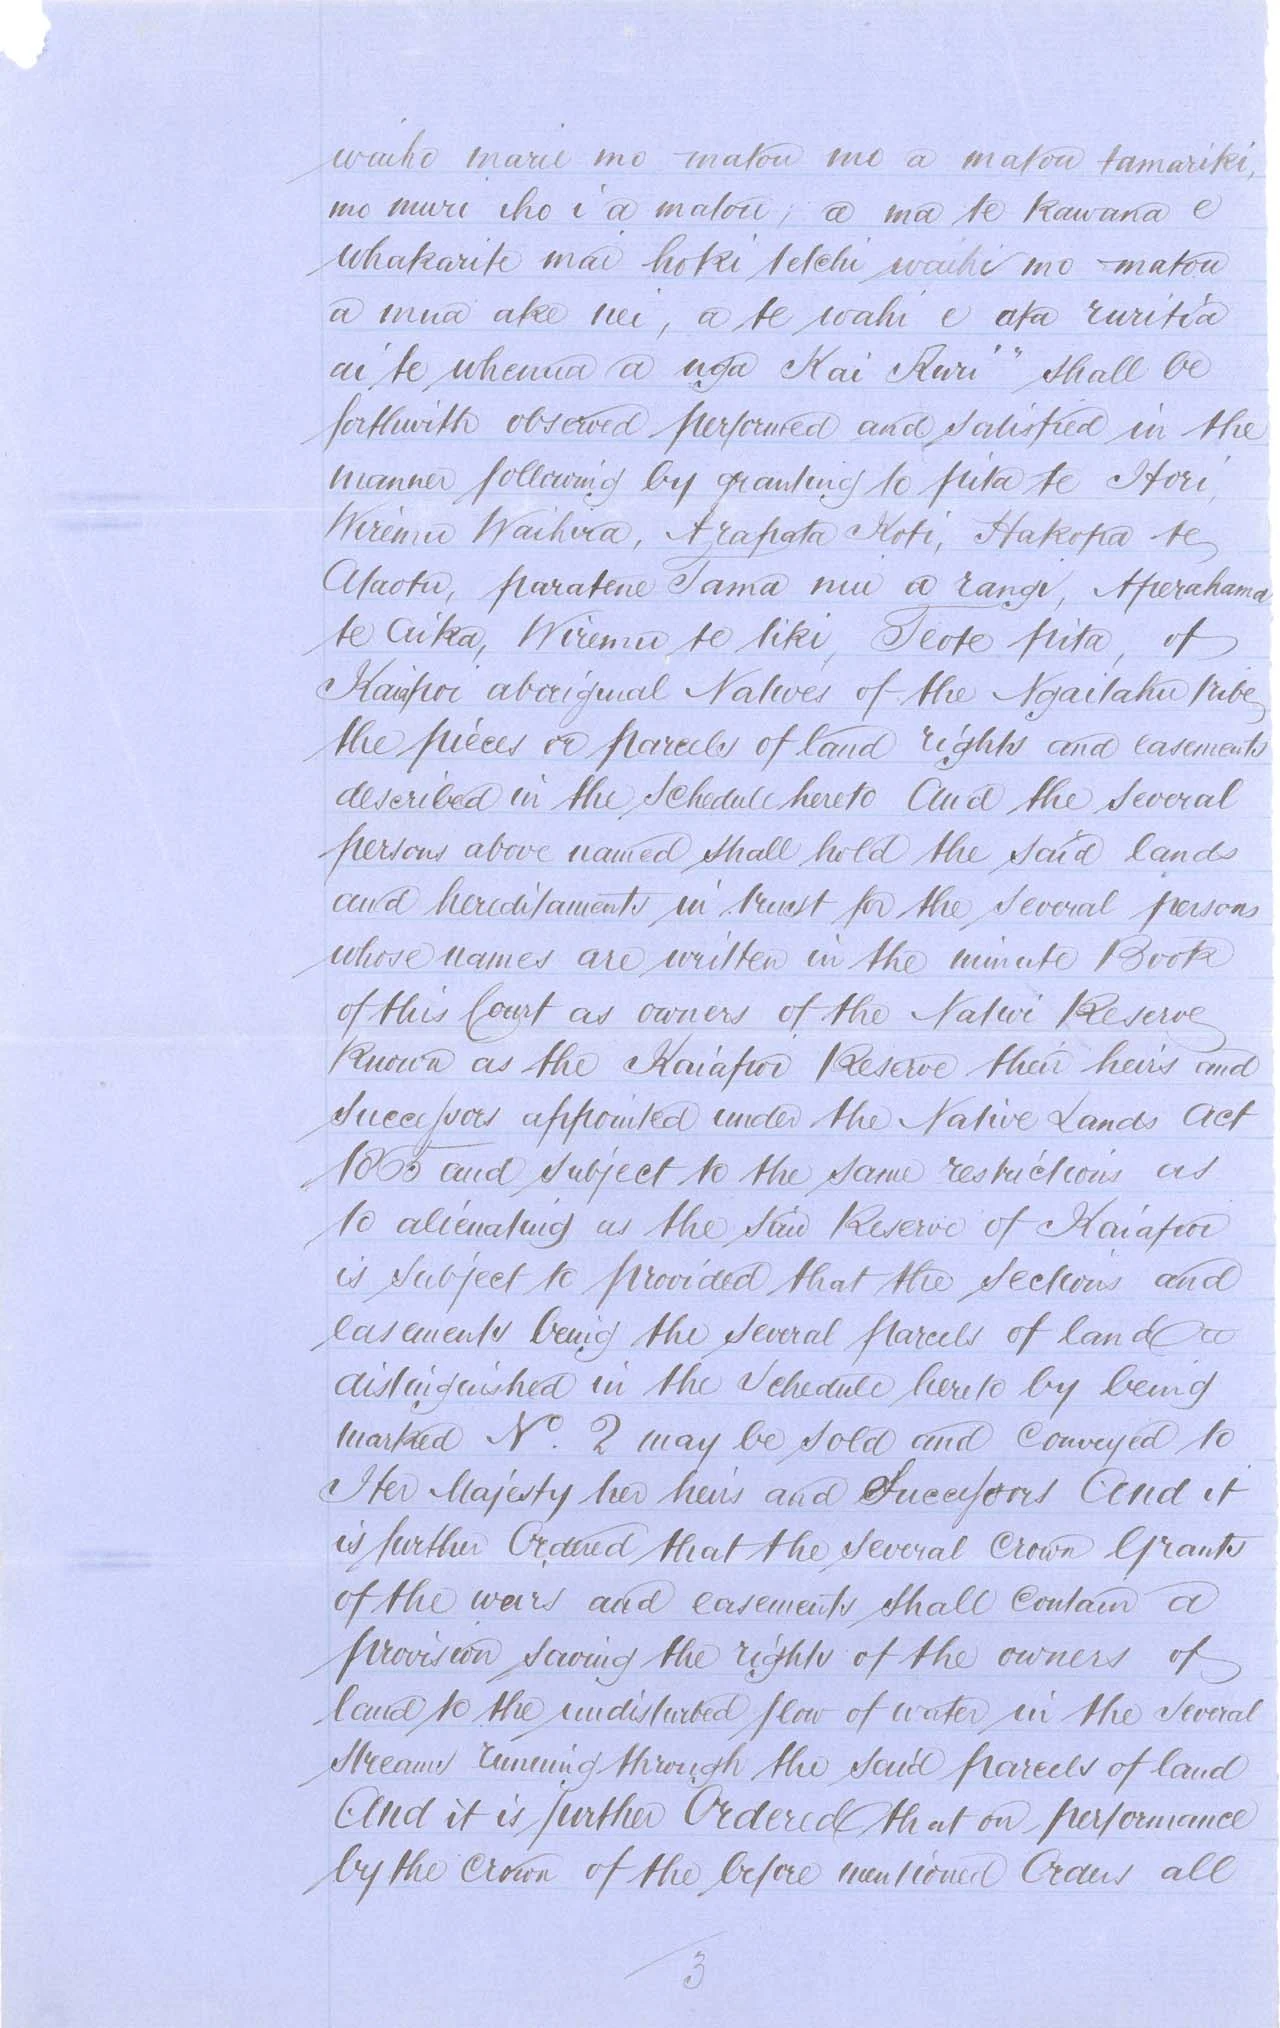 waiho marie mo matou mo a matou tamariki,
mo muri iho i a matou; a ma te Kawana e
whakarite mai hoki tetehi waihi mo matou
a mua ake nei, a te wahi e ata ruritia
ai te whenua a nga Kai Ruri" shall be
forthwith observed performed and satisfied in the
manner following by granting to pita te Hori,
Wiremu Waihira, Arapata Koti, Hakopa te
Ataotu, paratene Tama nui a rangi, Aperahama
te Aika, Wiremu te Uki, Teote pita, of
Kaiapoi aboriginal Natives of the Ngaitahu tribe
the pieces or parcels of land rights and easements
described in the Schedule hereto And the several
persons above named shall hold the said lands
and hereditaments in trust for the several persons
whose names are written in the minute Book
of this Court as owners of the Native Reserve
known as the Kaiapoi Reserve their heirs and
Successors appointed under the Native Lands Act
1865 and subject to the same restrictions as
to alienating as the said Reserve of Kaiapoi
is subject to provided that the sections and
easements being the several parcels of land
distinguished in the Schedule hereto by being
marked No. 2 may be sold and conveyed to
Her Majesty her heirs and Successors And it
is further Ordered that the several Crown Grants
of the weirs and easements shall contain a
provision saving the rights of the owners of
land to the undisturbed flow of water in the several
streams running through the said parcels of land
And it is further Ordered that on performance
by the Crown of the before mentioned Orders all
3